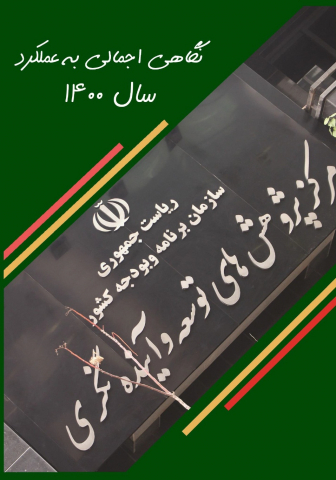 نگاهی اجمالی به عملکرد
سال ۱۴۰۰
ریاست جمهوری
سازمان برنامه وبودجه کشور
مرکز پژوهش های توسعه و آینده نگری